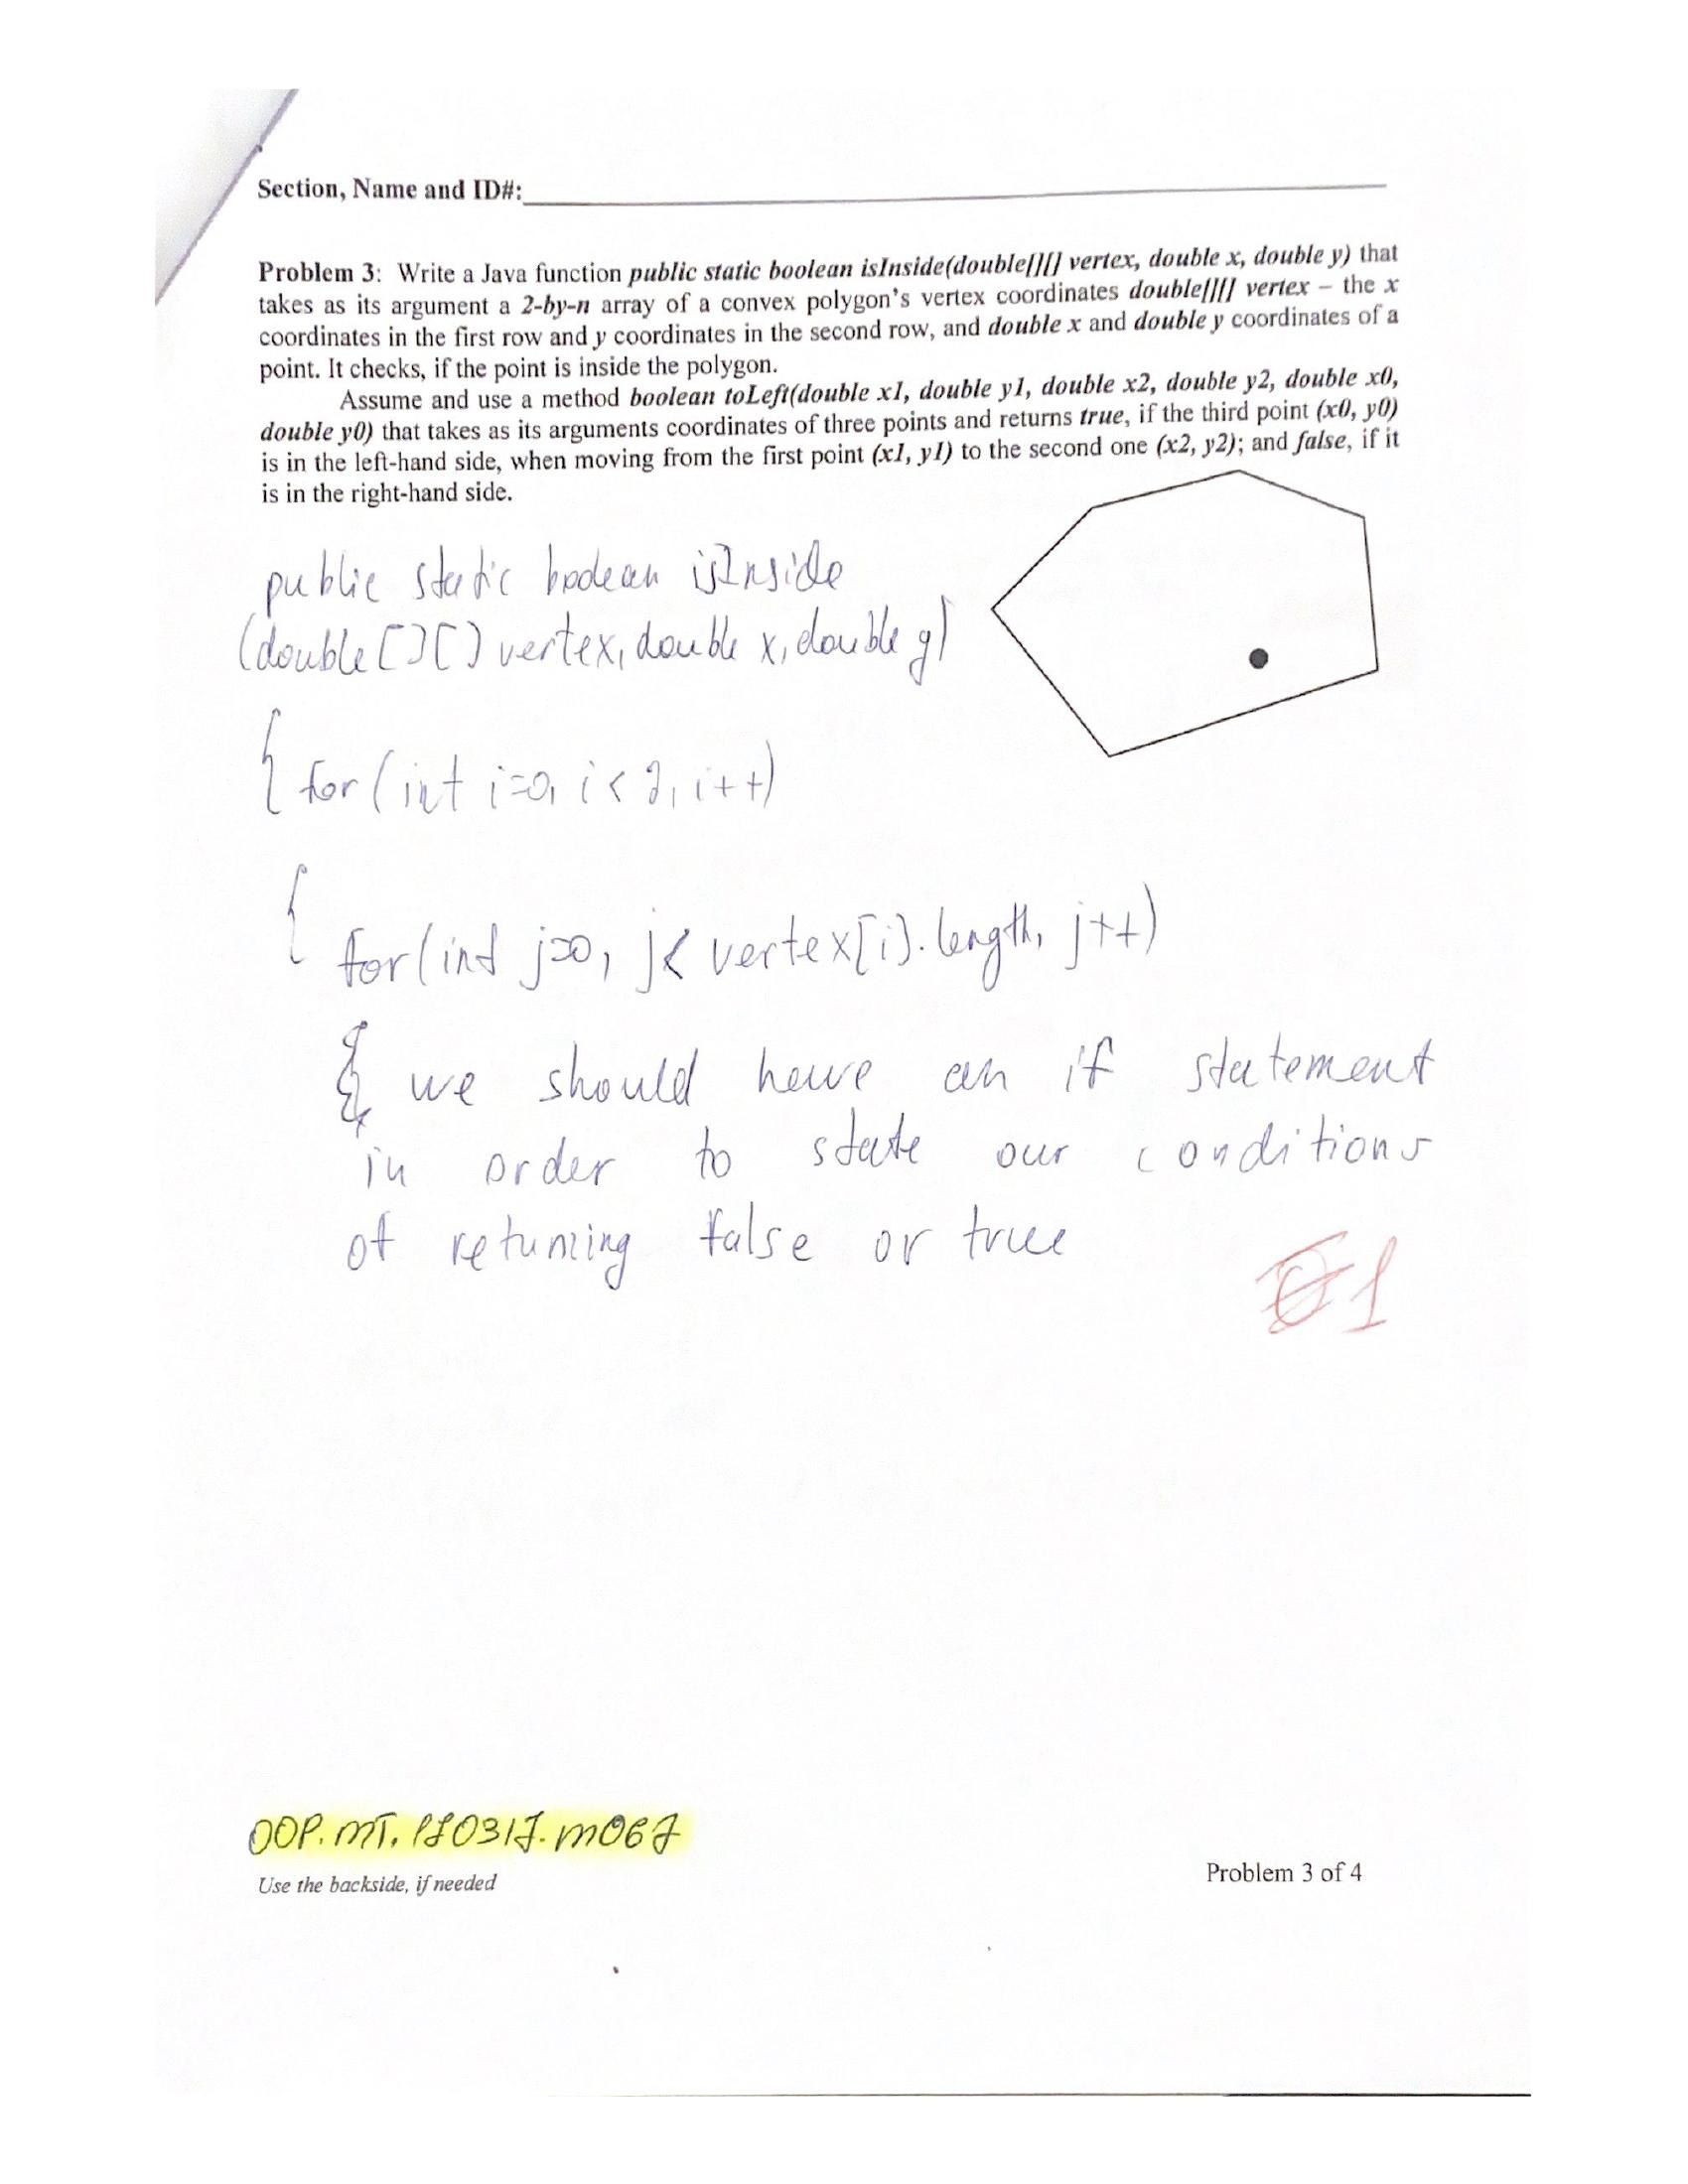 Section, Name and ID#:
Problem 3: Write a Java function public static boolean isInside(double[][] vertex, double x, double y) that
takes as its argument a 2-by-n array of a convex polygon's vertex coordinates double[][] vertex – the x
coordinates in the first row and y coordinates in the second row, and double x and double y coordinates of a
point. It checks, if the point is inside the polygon.
Assume and use a method boolean toLeft(double x1, double y1, double x2, double y2, double x0,
double y0) that takes as its arguments coordinates of three points and returns true, if the third point (x0, y0)
is in the left-hand side, when moving from the first point (x1, y1) to the second one (x2, y2); and false, if it
is in the right-hand side.
public static boolean isInside
(double [][] vertex, double x, double y)
{ for (int i=0, i < 2, i++)
{
for (int j=0, j < vertex[i].length, j++)
{ we should have an if statement
in order to state our conditions
of returning false or true
1
OOP.MT.
Use the backside, if needed
Problem 3 of 4